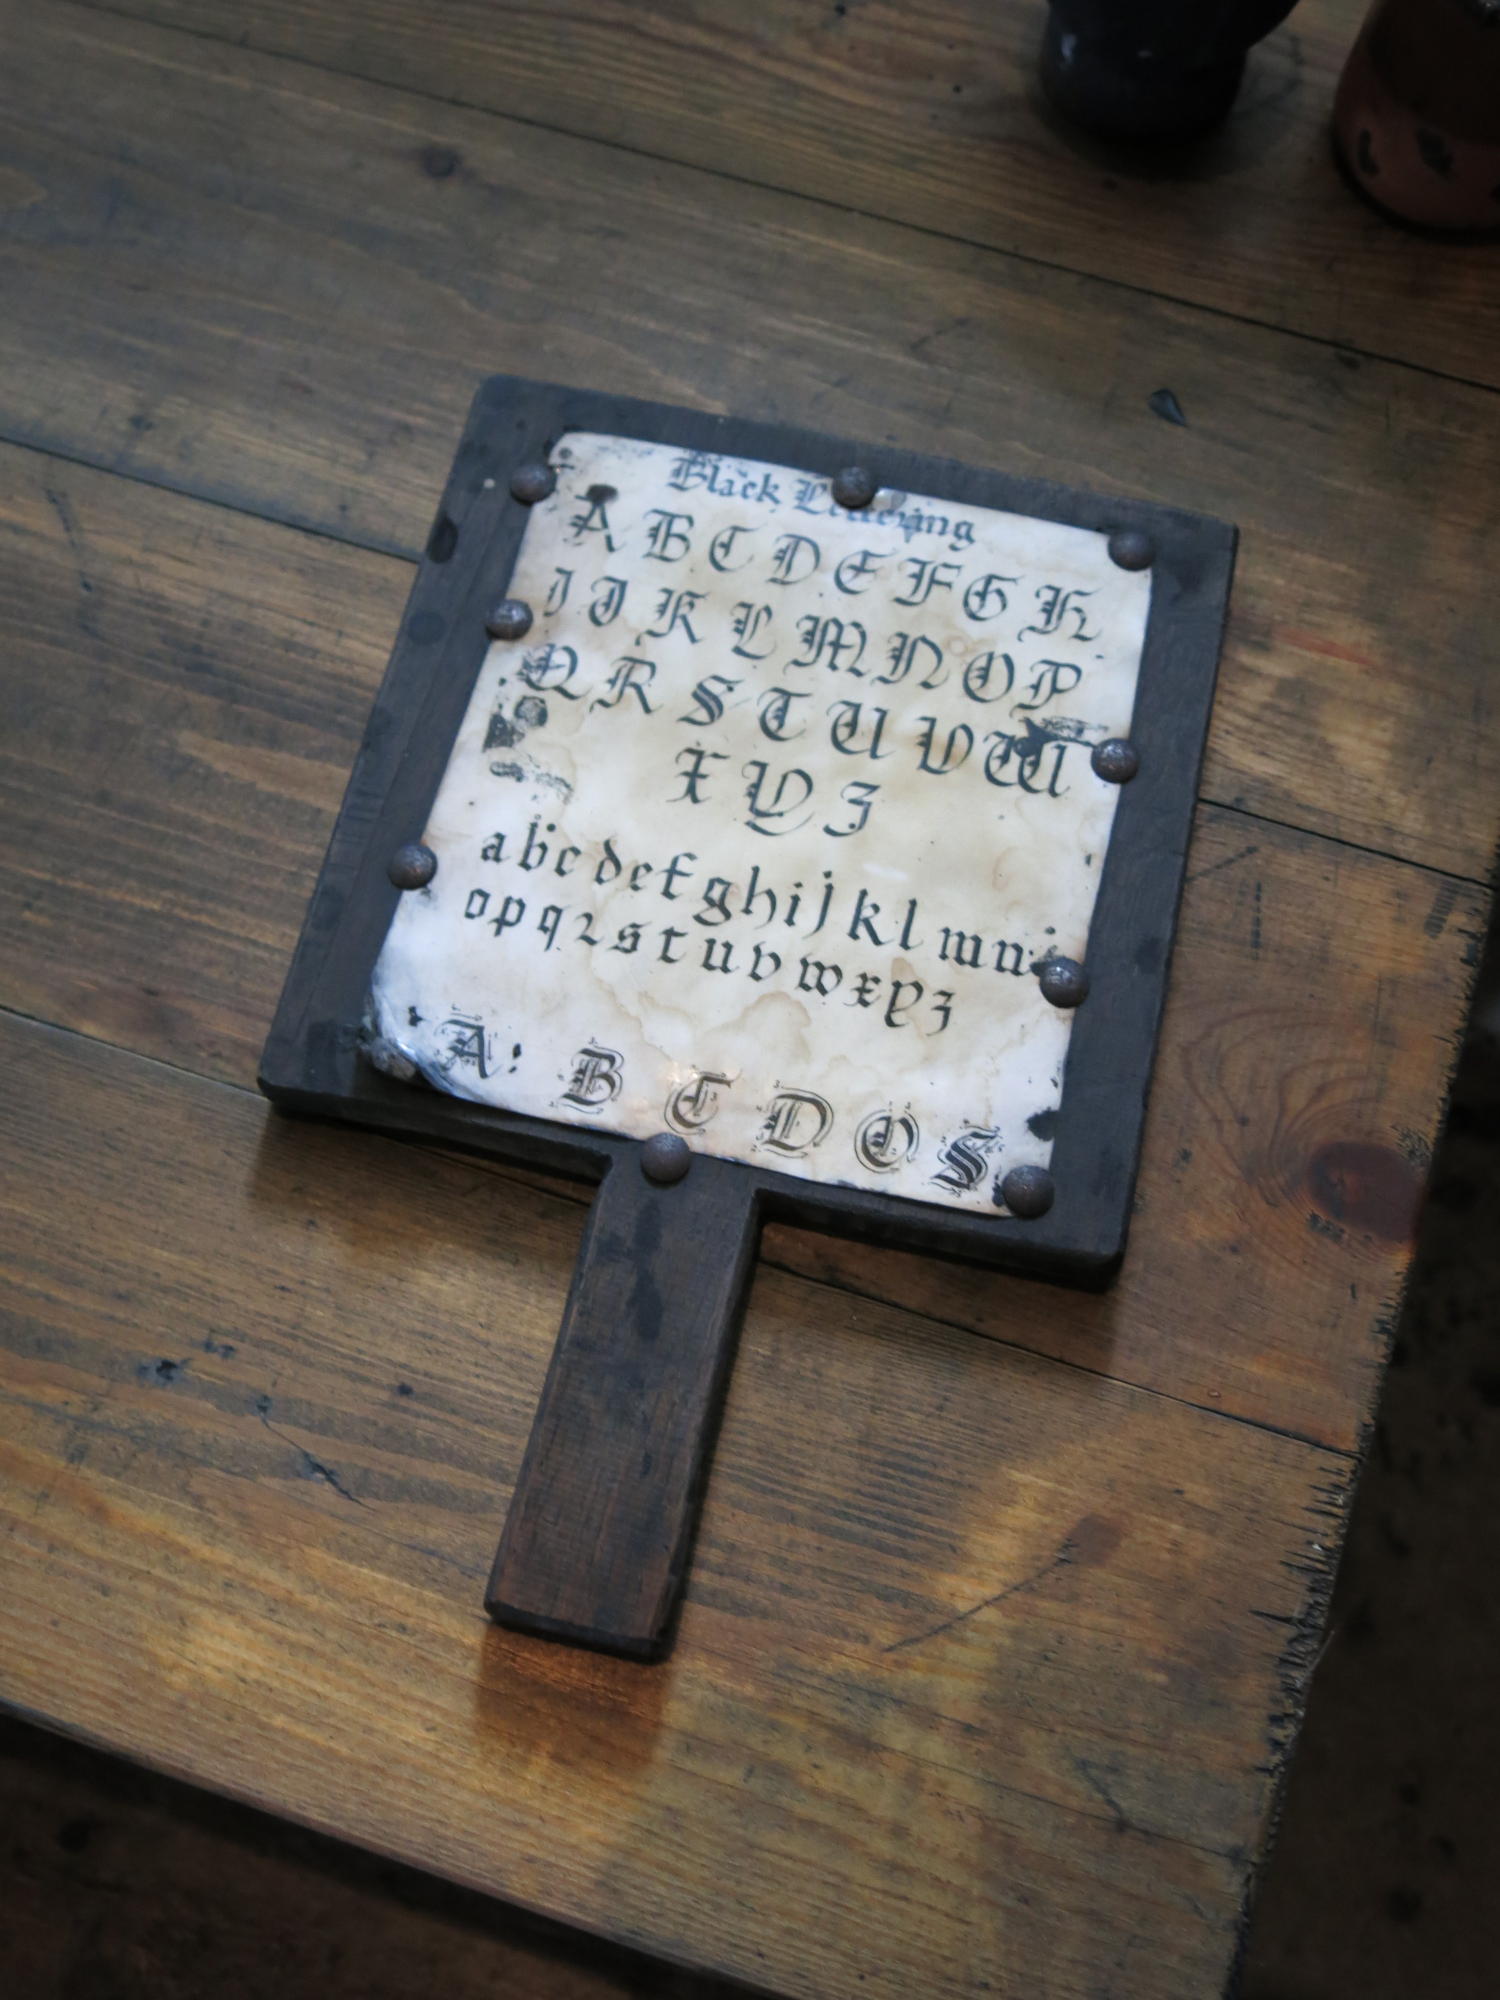 Black Lettering
A B C D E F G H
I J K L M N O P
Q R S T U V W
X Y Z
a b c d e f g h i j k l m n
o p q r s t u v w x y z
A: B C D O S